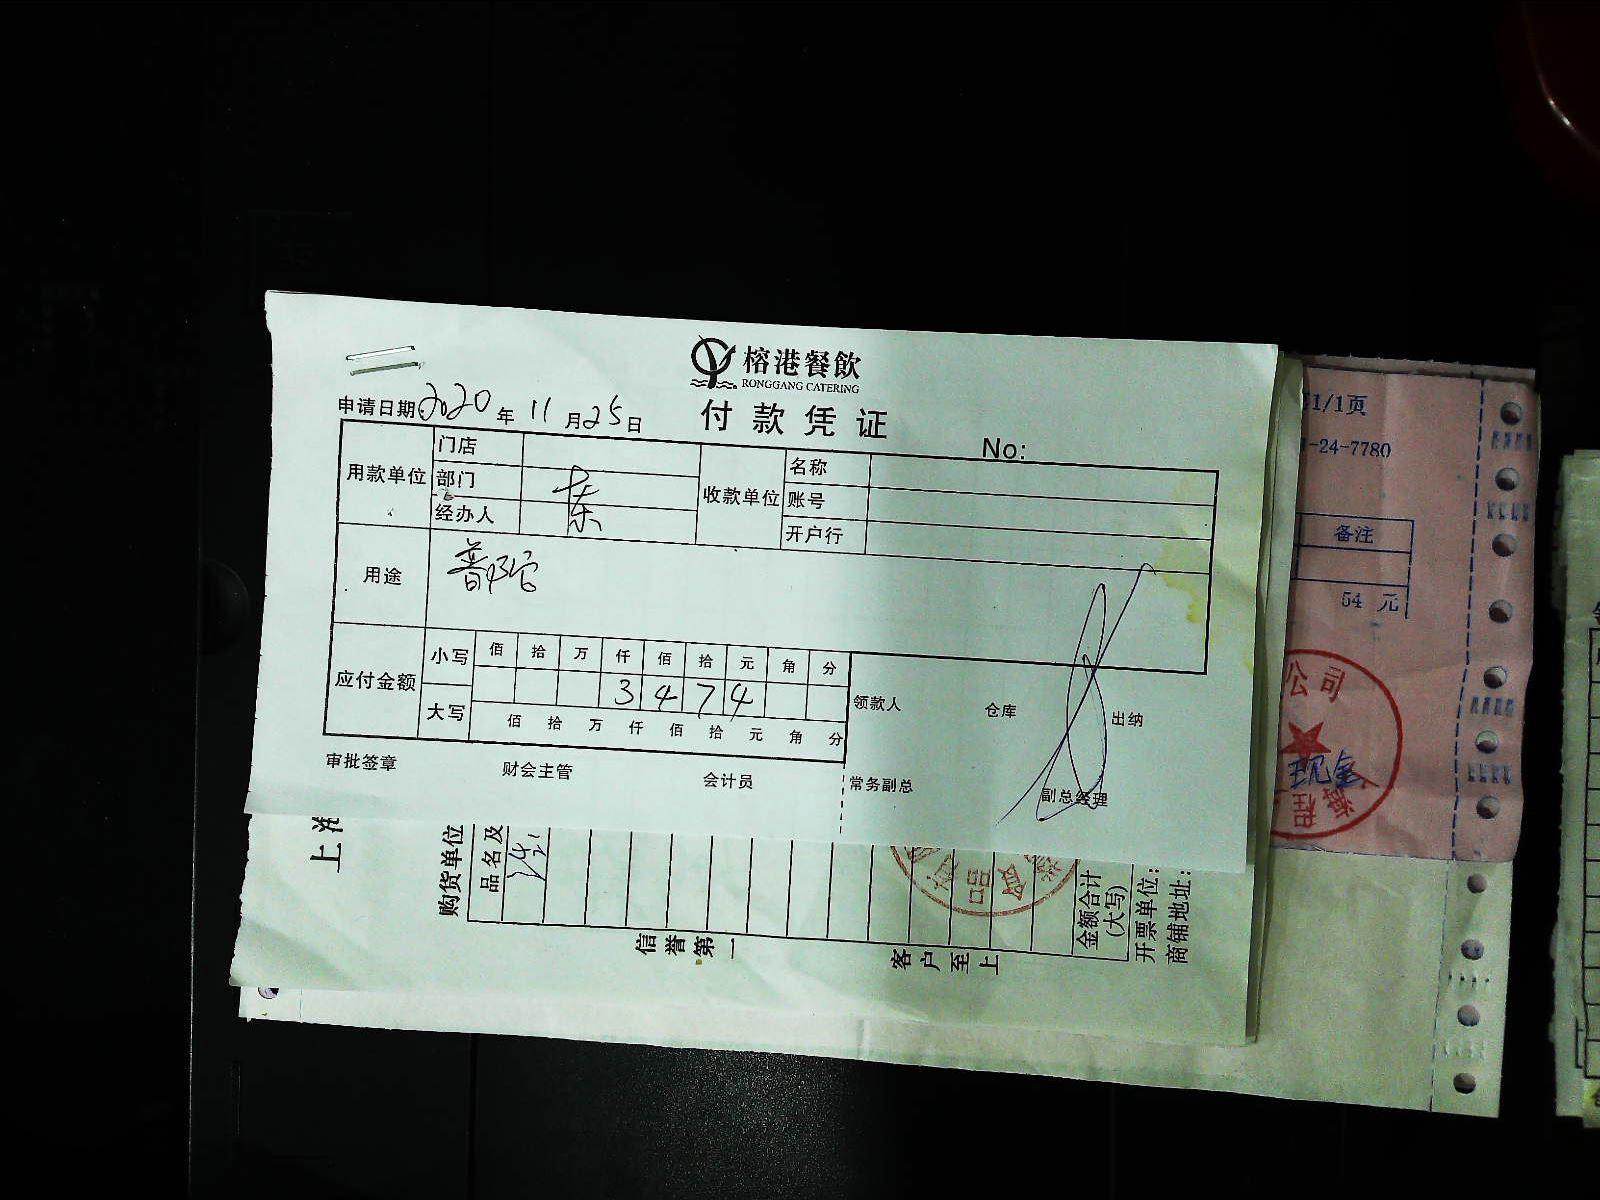 榕港餐飲
RONGGANG CATERING
付款凭证
申请日期 2020 年 11 月 25 日
No:
用款单位 门店 收款单位 名称
部门 账号
经办人 开户行
用途
应付金额 小写 佰 拾 万 仟 佰 拾 元 角 分
3 4 7 4
大写 佰 拾 万 仟 佰 拾 元 角 分
领款人 仓库 出纳
审批签章 财会主管 会计员 常务副总 副总经理
1/1页
-24-7780
备注
54 元
公司
现金
上
购货单位
品名及
信誉第一
客户至上
金额合计
(大写)
开票单位:
商铺地址: